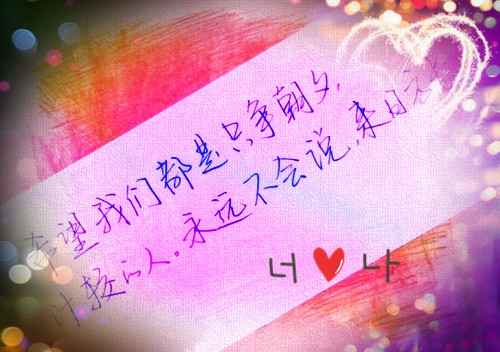 希望我们都是只争朝夕，
的人。永远不会说，来日
너 ❤ 나